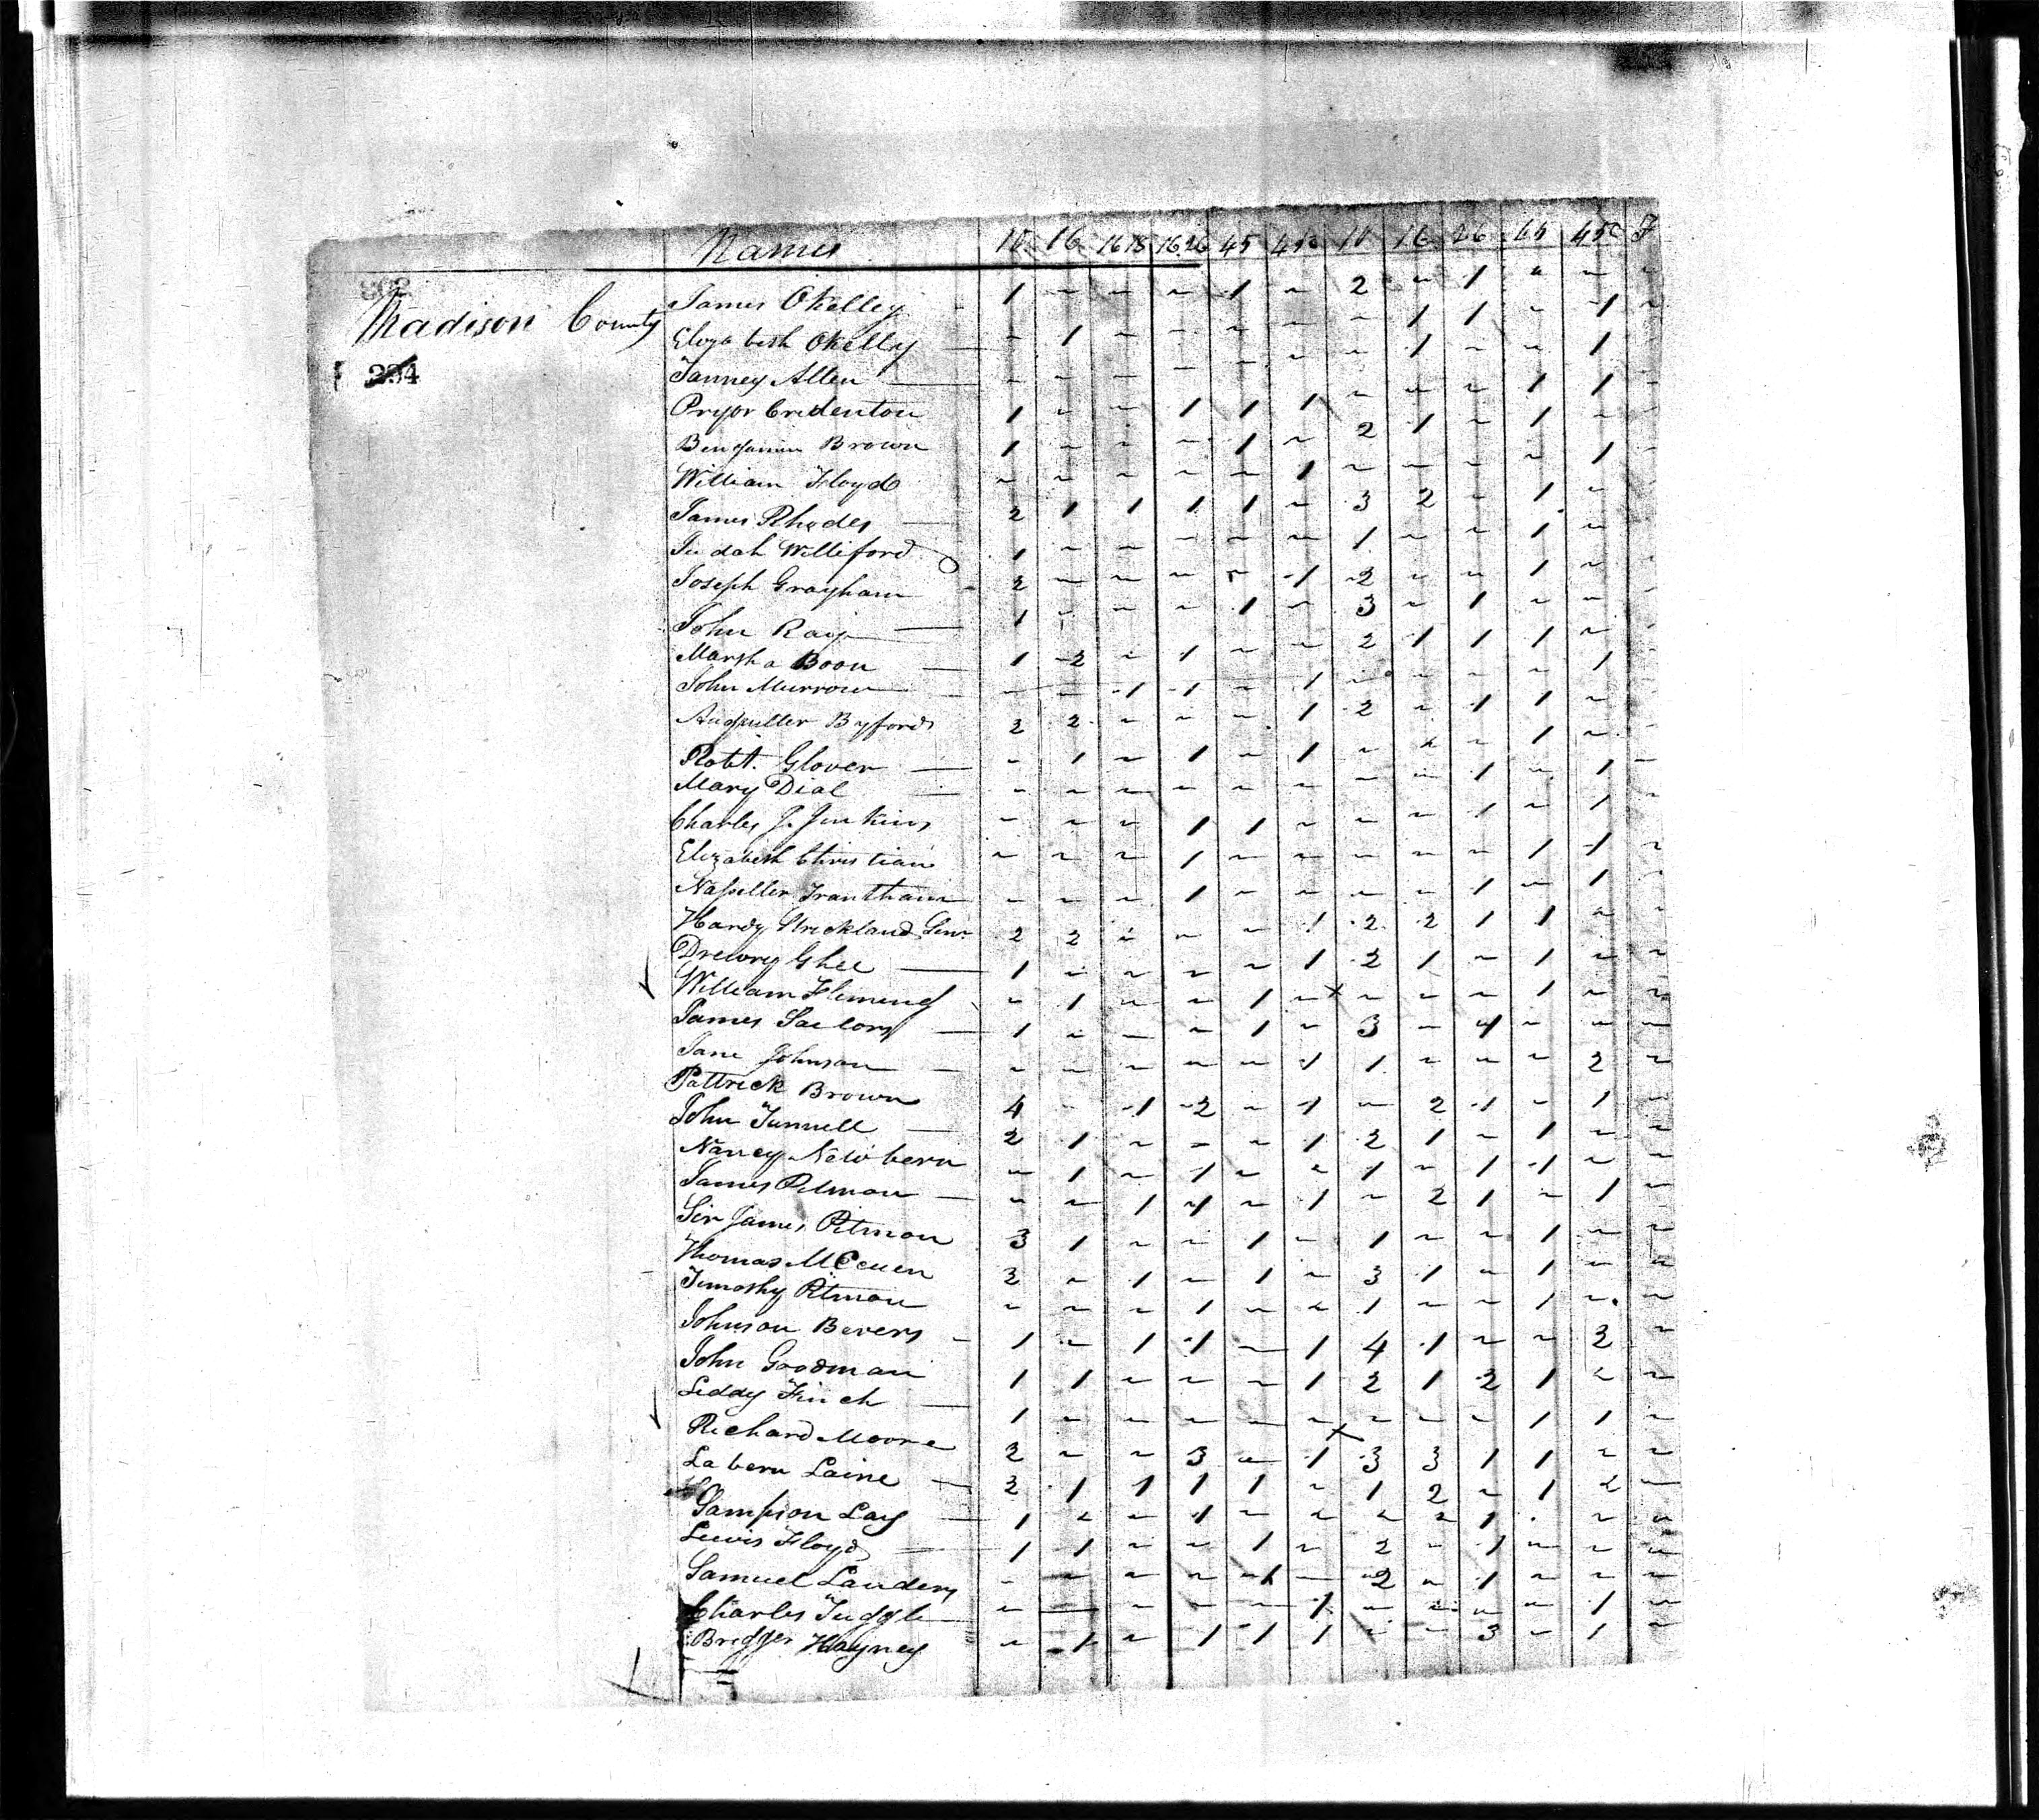 Names 10 16 16 18 16 26 45 45 10 16 26 45 45 F
302
Madison County
294
James OKelley - 1 ~ ~ ~ 1 ~ 2 ~ 1 ~ ~ ~
Elizabeth OKelly — ~ 1 ~ ~ ~ ~ ~ 1 1 ~ 1 ~
Fanney Allen — ~ ~ ~ ~ ~ ~ ~ 1 ~ ~ 1 ~
Pryor Cridenton 1 ~ ~ 1 1 1 ~ ~ ~ 1 1 ~
Benjamin Brown 1 ~ ~ ~ 1 ~ 2 1 ~ 1 ~ ~
William Floyd ~ ~ ~ ~ ~ 1 ~ ~ ~ ~ 1 ~
James Rhodes — 2 1 1 1 1 ~ 3 2 ~ 1 ~ ~
Judah Williford 1 ~ ~ ~ ~ ~ 1 ~ ~ 1 ~ ~
Joseph Grayham - 2 ~ ~ ~ ~ 1 2 ~ ~ 1 ~ ~
John Ray — 1 ~ ~ ~ 1 ~ 3 ~ 1 ~ ~ ~
Marsha Boon — 1 2 ~ 1 ~ ~ 2 1 1 1 ~ ~
John Murrow — ~ ~ 1 1 ~ 1 ~ ~ ~ ~ 1 ~
Byford 2 2 ~ ~ ~ 1 2 ~ 1 1 ~ ~
Robt. Glover — ~ 1 ~ 1 ~ 1 ~ ~ ~ 1 ~ ~
Mary Dial — ~ ~ ~ ~ ~ ~ ~ ~ 1 ~ 1 ~
Charles J. Jenkins ~ ~ ~ 1 1 ~ ~ ~ 1 ~ 1 ~
Elizabeth Christian ~ ~ ~ 1 ~ ~ ~ ~ ~ 1 1 ~
Trantham ~ ~ ~ 1 ~ ~ ~ ~ 1 ~ 1 ~
Hardy Strickland Senr 2 2 ~ ~ ~ 1 2 2 1 1 ~ ~
Drewry Ghee — 1 ~ ~ ~ ~ 1 2 1 ~ 1 ~ ~
William Fleming ~ 1 ~ ~ 1 ~ x ~ ~ ~ 1 ~ ~
James Sailors — 1 ~ ~ ~ 1 ~ 3 ~ 1 ~ ~ ~
Jane Johnson — ~ ~ ~ ~ ~ 1 1 ~ ~ ~ 2 ~
Pattrick Brown 4 ~ 1 2 ~ 1 ~ 2 1 ~ 1 ~
John Tunnell — 2 1 ~ ~ ~ 1 2 1 ~ 1 ~ ~
Nancy Newbern ~ 1 ~ 1 ~ ~ 1 ~ 1 1 ~ ~
James Pitman — ~ ~ 1 1 ~ 1 ~ 2 1 ~ 1 ~
Sir James Pitman 3 1 ~ ~ 1 ~ 1 ~ ~ 1 ~ ~
Thomas McCuen 2 ~ 1 ~ 1 ~ 3 1 ~ 1 ~ ~
Timothy Pitman ~ ~ ~ 1 ~ ~ 1 ~ ~ 1 ~ ~
Johnson Bevers - 1 ~ 1 1 ~ 1 4 1 ~ ~ 2 ~
John Goodman 1 1 ~ ~ ~ 1 2 1 2 1 ~ ~
Liddy Finch — 1 ~ ~ ~ ~ ~ ~ ~ ~ 1 1 ~
Richard Moore 2 ~ ~ 3 ~ 1 x 3 3 1 1 ~ ~
Labern Laine — 2 1 1 1 1 ~ 1 2 ~ 1 2 ~
Sampson Lay — 1 ~ ~ 1 ~ ~ ~ ~ 1 ~ ~ ~
Lewis Floyd — 1 1 ~ ~ 1 ~ 2 ~ 1 ~ ~ ~
Samuel Landers ~ ~ ~ ~ 1 ~ 2 ~ 1 ~ ~ ~
Charles Tuggle — ~ ~ ~ ~ ~ 1 ~ ~ ~ ~ 1 ~
Bridger Hayney ~ 1 ~ 1 1 1 ~ ~ 3 ~ 1 ~